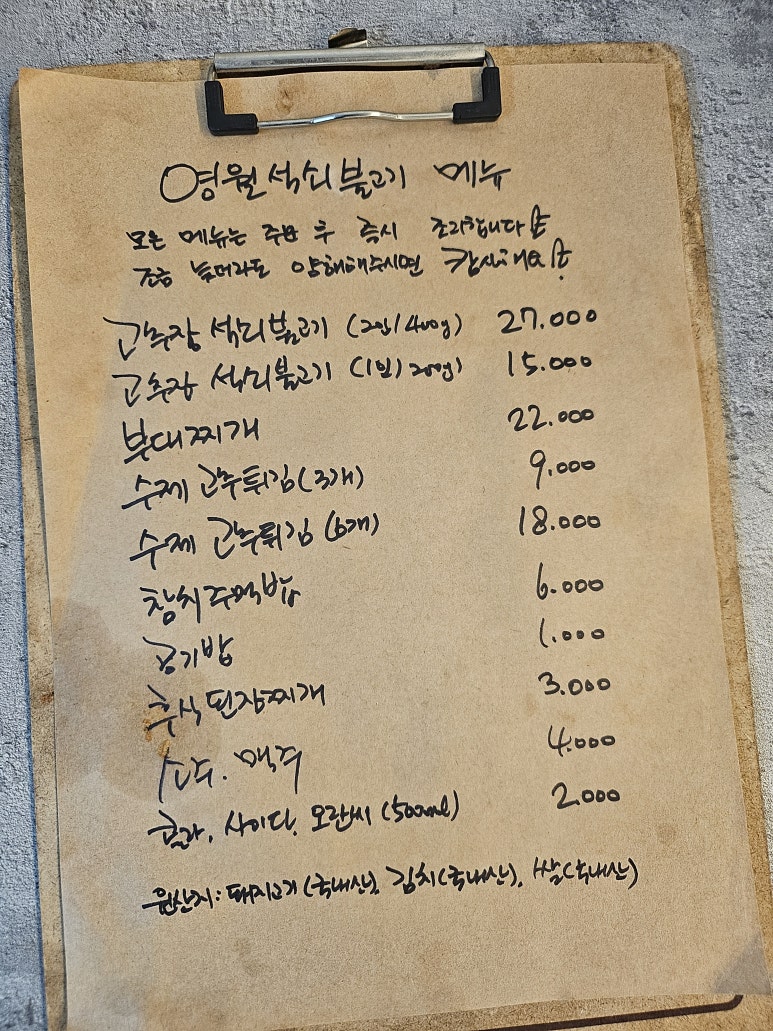 영월석쇠불고기 메뉴
모든 메뉴는 주문 후 즉시 조리합니다
조금 늦더라도 양해해주시면 감사해요
고추장 석쇠불고기 (2인/400g) 27.000
고추장 석쇠불고기 (1인/200g) 15.000
부대찌개 22.000
수제 고추튀김 (3개) 9.000
수제 고추튀김 (6개) 18.000
참치주먹밥 6.000
공기밥 1.000
후식 된장찌개 3.000
소주. 맥주 4.000
콜라, 사이다, 오란씨 (500ml) 2.000
원산지: 돼지고기(국내산), 김치(국내산), 쌀(국내산)